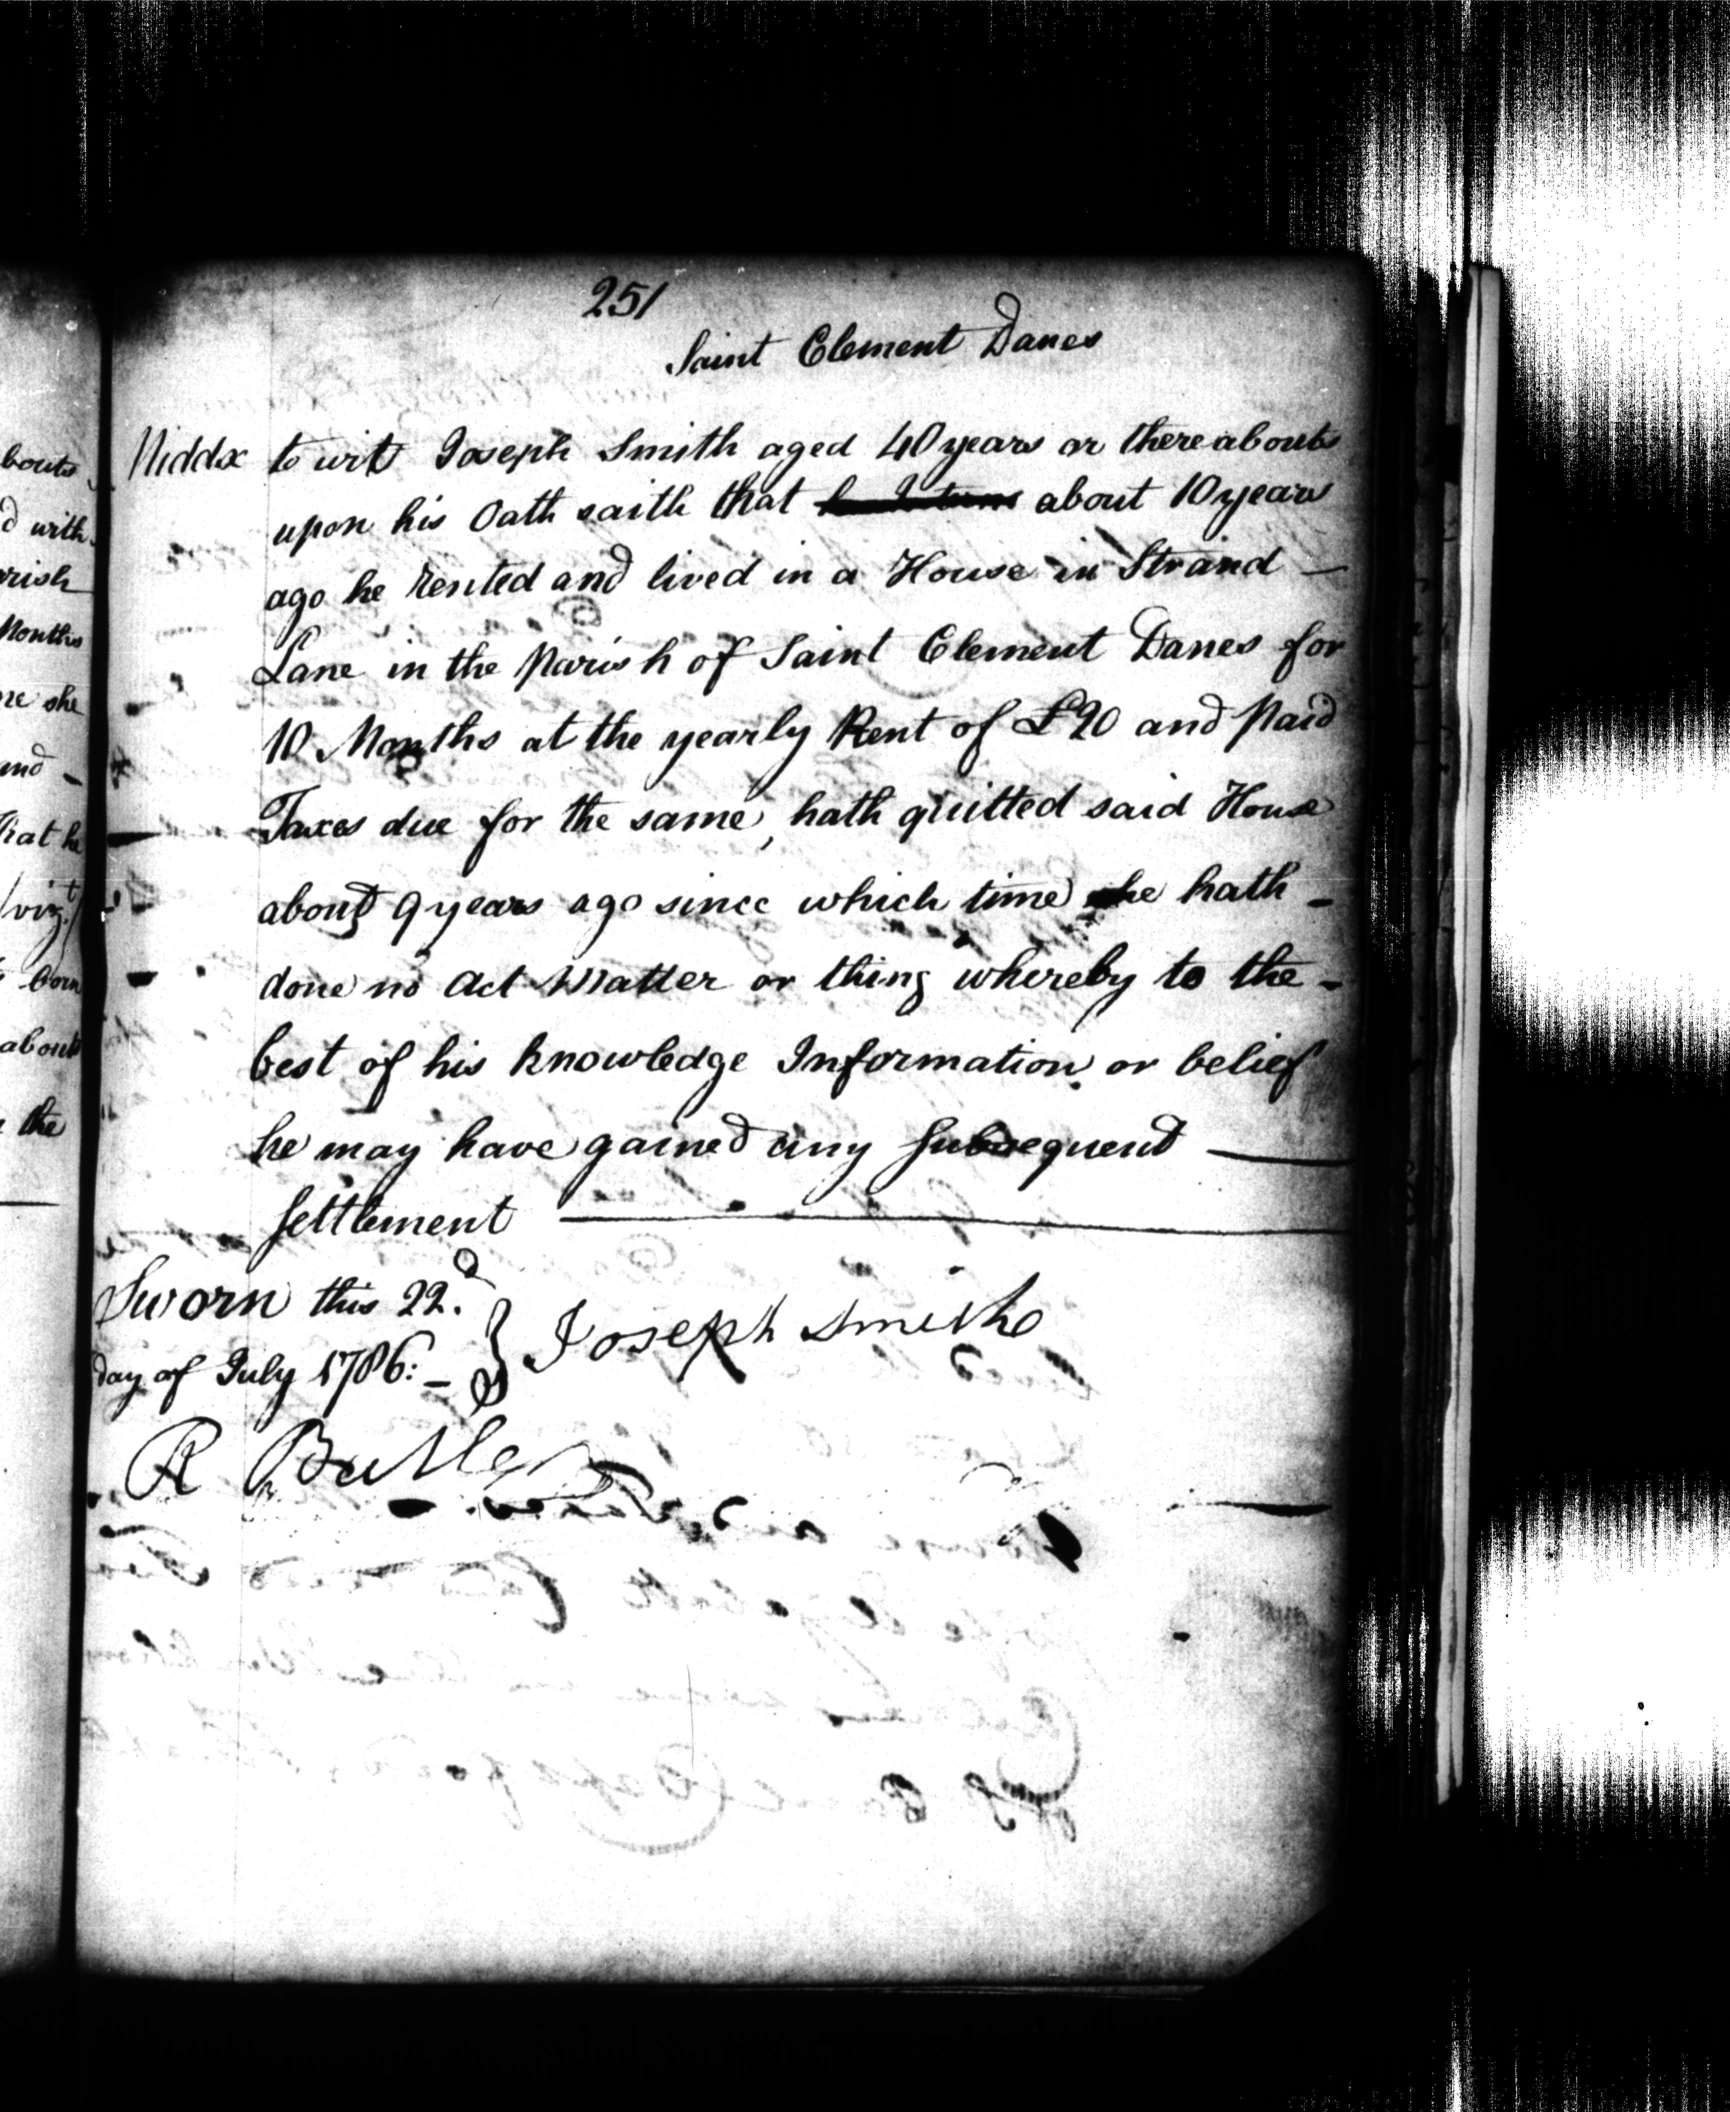 251
Saint Clement Danes
bouts
Middx to wit Joseph Smith aged 40 years or thereabouts
d with
upon his Oath saith that about 10 years
rish
ago he rented and lived in a House in Strand —
Months
Lane in the Parish of Saint Clement Danes for
ne she
10 Months at the yearly Rent of £20 and Paid
and —
Taxes due for the same, hath quitted said House
that he
about 9 years ago since which time he hath —
/vizt/
done no Act Matter or thing whereby to the —
born
best of his knowledge Information or belief
about
he may have gained any Subsequent —
the
Settlement —
Sworn this 22.d
day of July 1786: —
Joseph Smith
R Butler